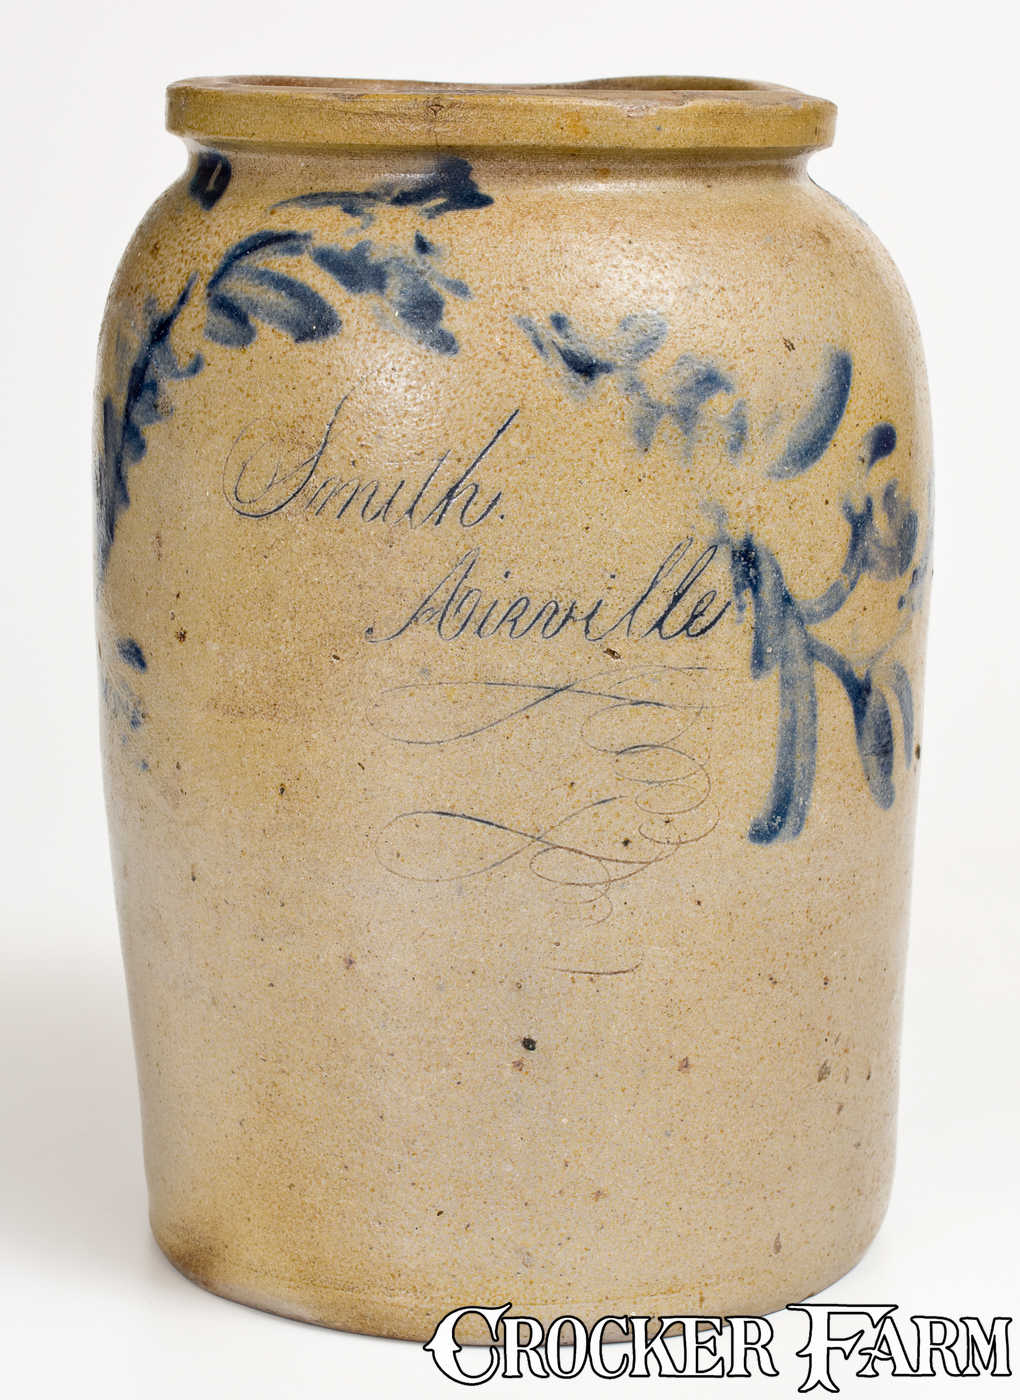 Smith.
Airville
CROCKER FARM